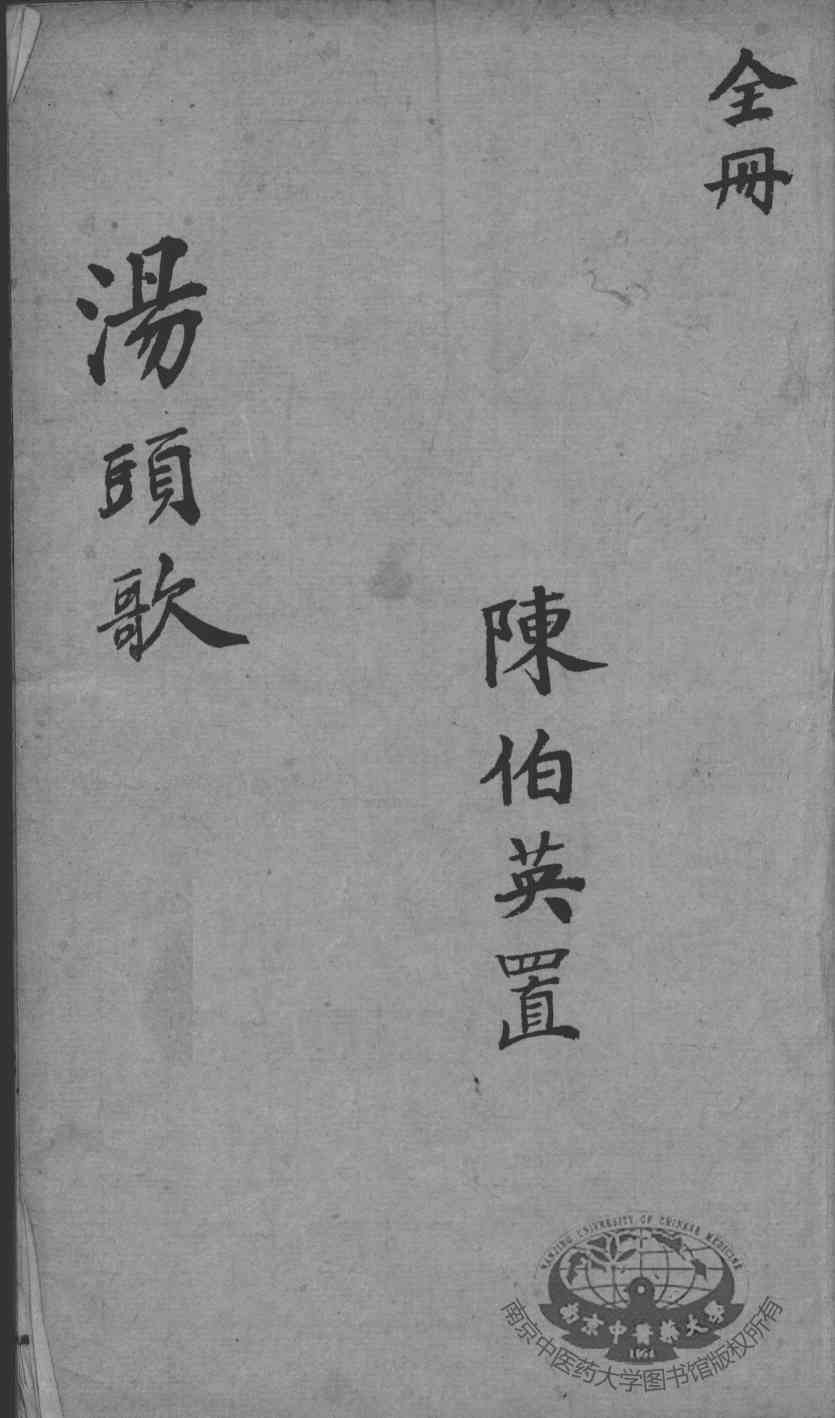 全冊
陳伯英置
湯頭歌
NANJING UNIVERSITY OF CHINESE MEDICINE
南京中醫药大學
1954
南京中医药大学图书馆版权所有